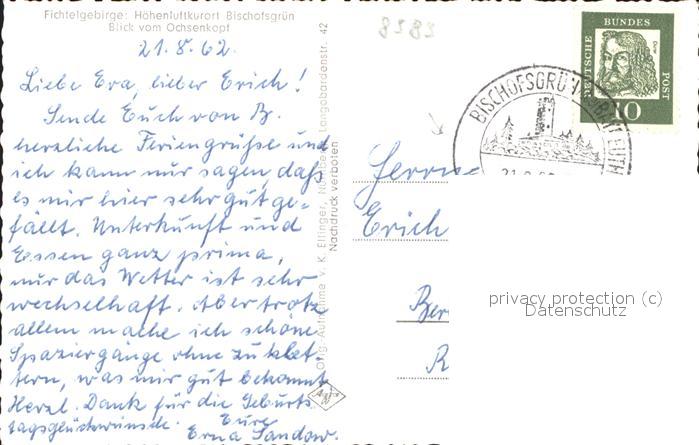 Fichtelgebirge: Höhenluftkurort Bischofsgrün
Blick vom Ochsenkopf
21.8.62.
Liebe Eva, lieber Erich!
Sende Euch von B.
herzliche Feriengrüße und
ich kann nur sagen, daß
es mir hier sehr gut ge-
fällt. Unterkunft und
Essen ganz prima,
nur das Wetter ist sehr
wechselhaft. Aber trotz
allem mache ich schöne
Spaziergänge ohne zu klet-
tern, was mir gut bekommt
Herzl. Dank für die Geburts
tagsglückwünsche. Eure
Erna Sandow.
Orig.-Aufnahme v. K. Ellinger, Nürnberg, Langobardenstr. 42
Nachdruck verboten
8583
DEUTSCHE
BUNDES
POST
Dürer
10
BISCHOFSGRÜN
Herrn
Erich
Ber
R
privacy protection (c)
Datenschutz